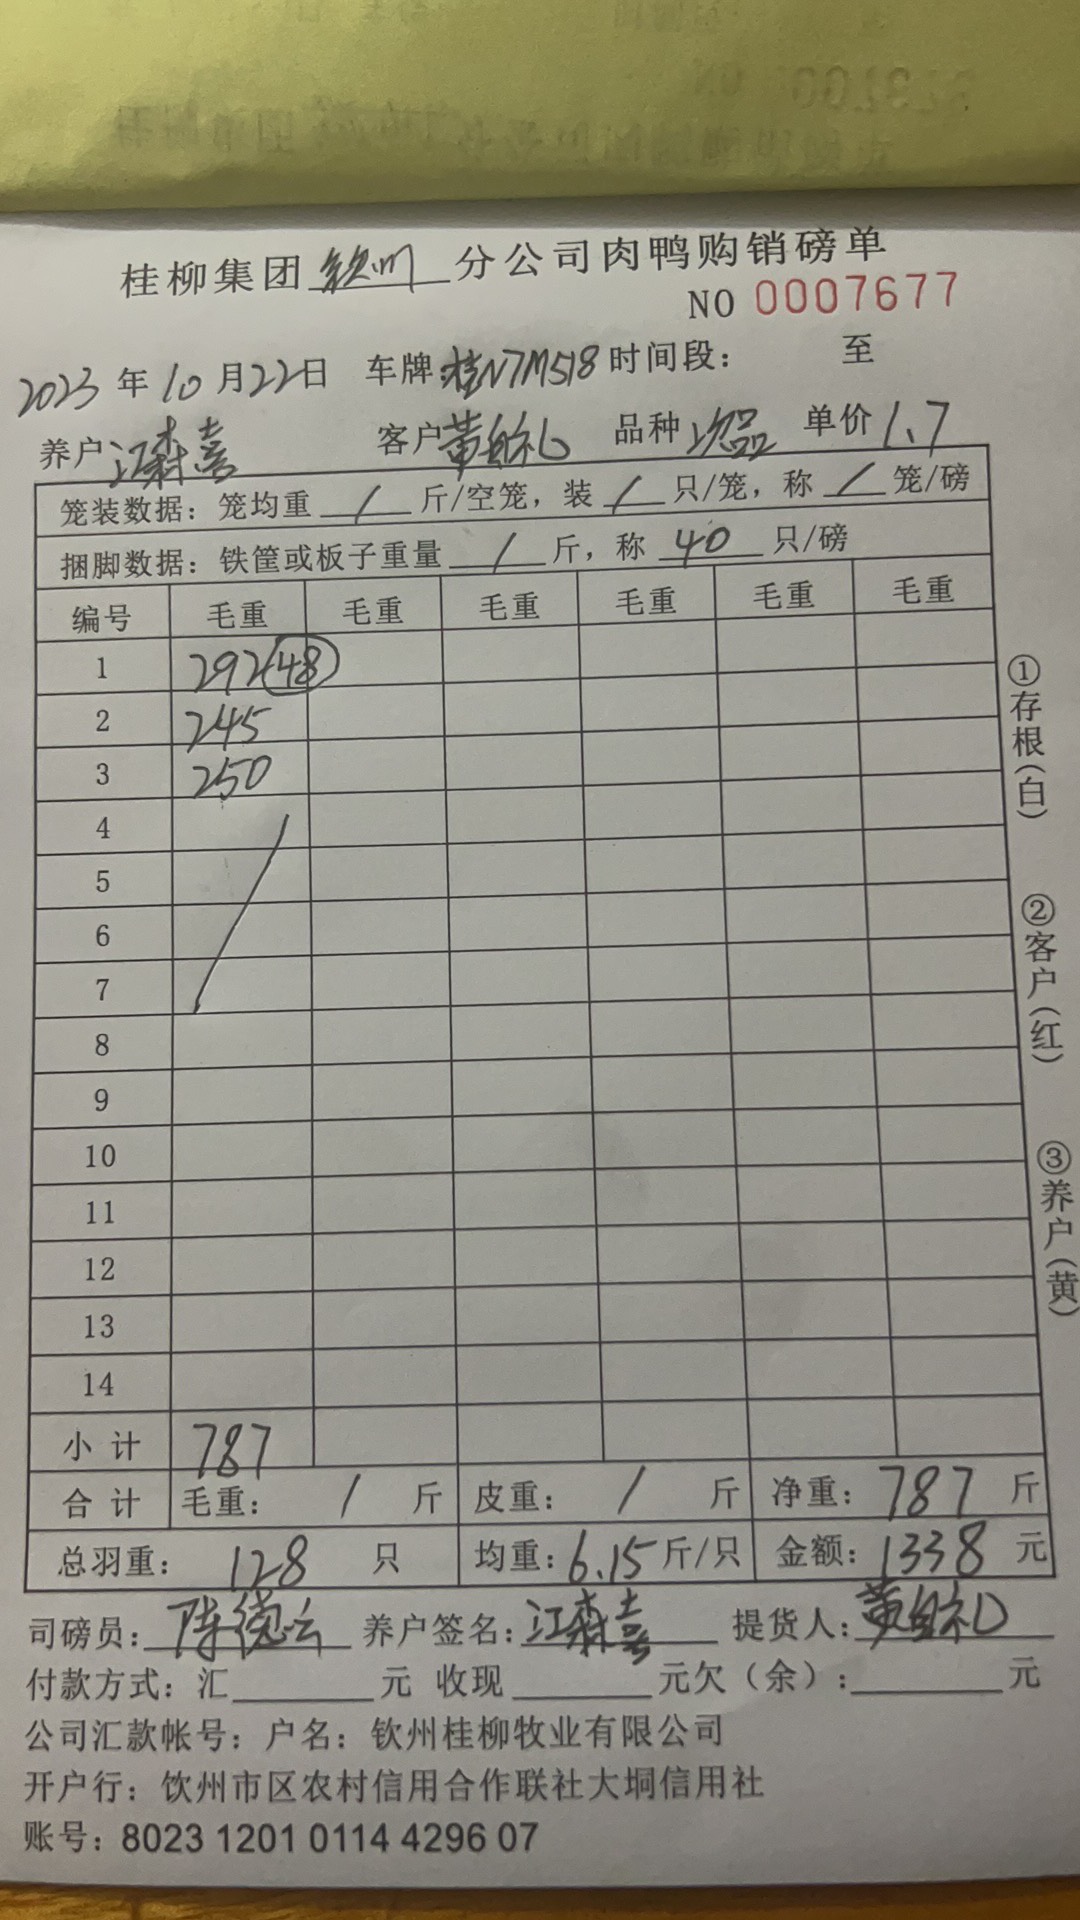 桂柳集团钦州分公司肉鸭购销磅单
NO 0007677
2023年10月22日 车牌:桂N7M518 时间段: 至
养户江森喜 客户黄自礼 品种次品 单价1.7
笼装数据：笼均重 / 斤/空笼，装 / 只/笼，称 / 笼/磅
捆脚数据：铁筐或板子重量 / 斤，称 40 只/磅
编号 毛重 毛重 毛重 毛重 毛重 毛重
1 292(48)
2 245
3 250
4
5
6
7
8
9
10
11
12
13
14
小计 787
合计 毛重： / 斤 皮重： / 斤 净重：787 斤
总羽重： 128 只 均重：6.15斤/只 金额：1338 元
司磅员：陈德云 养户签名：江森喜 提货人：黄自礼
付款方式：汇 元 收现 元欠（余）： 元
公司汇款帐号：户名：钦州桂柳牧业有限公司
开户行：饮州市区农村信用合作联社大垌信用社
账号：8023 1201 0114 4296 07
①存根（白）
②客户（红）
③养户（黄）